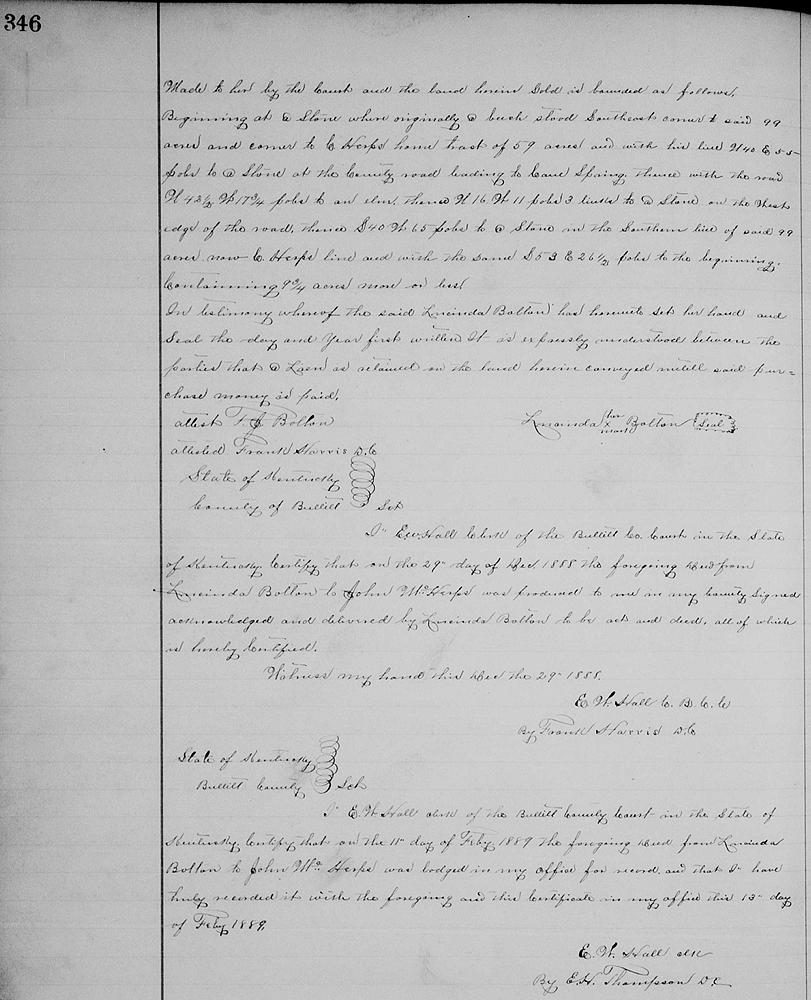 346
Made to her by the Court and the land herein Sold is bounded as follows.
Beginning at a Stone where originally a beech stood Southeast corner to said 99
acres and corner to C Herps home tract of 59 acres and with his line N 40 E 55
pols to a Stone at the County road leading to Cane Spring. thence with the road
N 42 1/2 W 17 3/4 pols to an elm. thence N 16 W 11 pols 3 links to a Stone on the West
edge of the road, thence S 40 W 65 pols to a Stone in the Southern line of said 99
acres now C Herps line and with the same S 53 E 26 1/2 pols to the beginning.
Containning 9 3/4 acres more or less
In testimony whereof the said Lucinda Bolton has hereunto set her hand and
Seal the day and Year first written It is expressly understood between the
parties that a Lien as retained on the land herein conveyed untill said pur=
chase money is paid.
attest T. J Bolton
Lucinda her x mark Bolton Seal
attested Frank Harris D.C
State of Kentucky
County of Bullitt Sct
I E.W. Hall Clerk of the Bullitt Co. Court in the State
of Kentucky Certify that on the 29" day of Dec. 1888 the foregoing Deed from
Lucinda Bolton to John Mc Herps was produced to me in my County Signed
acknowledged and delivered by Lucinda Bolton to be act and deed, all of which
is hereby Certified.
Witness my hand this Dec the 29" 1888.
E. W. Hall C. B. C. C
By Frank Harris D.C
State of Kentucky
Bullitt County Sct
I E. W Hall clerk of the Bullitt County Court in the State of
Kentucky Certify that on the 11" day of Feby 1889 the foregoing Deed from Lucinda
Bolton to John Mc. Herps was lodged in my office for record. and that I have
truly recorded it with the foregoing and this Certificate in my office this 13" day
of Feby 1889
E. W. Hall clk
By E. H. Thompson D.C